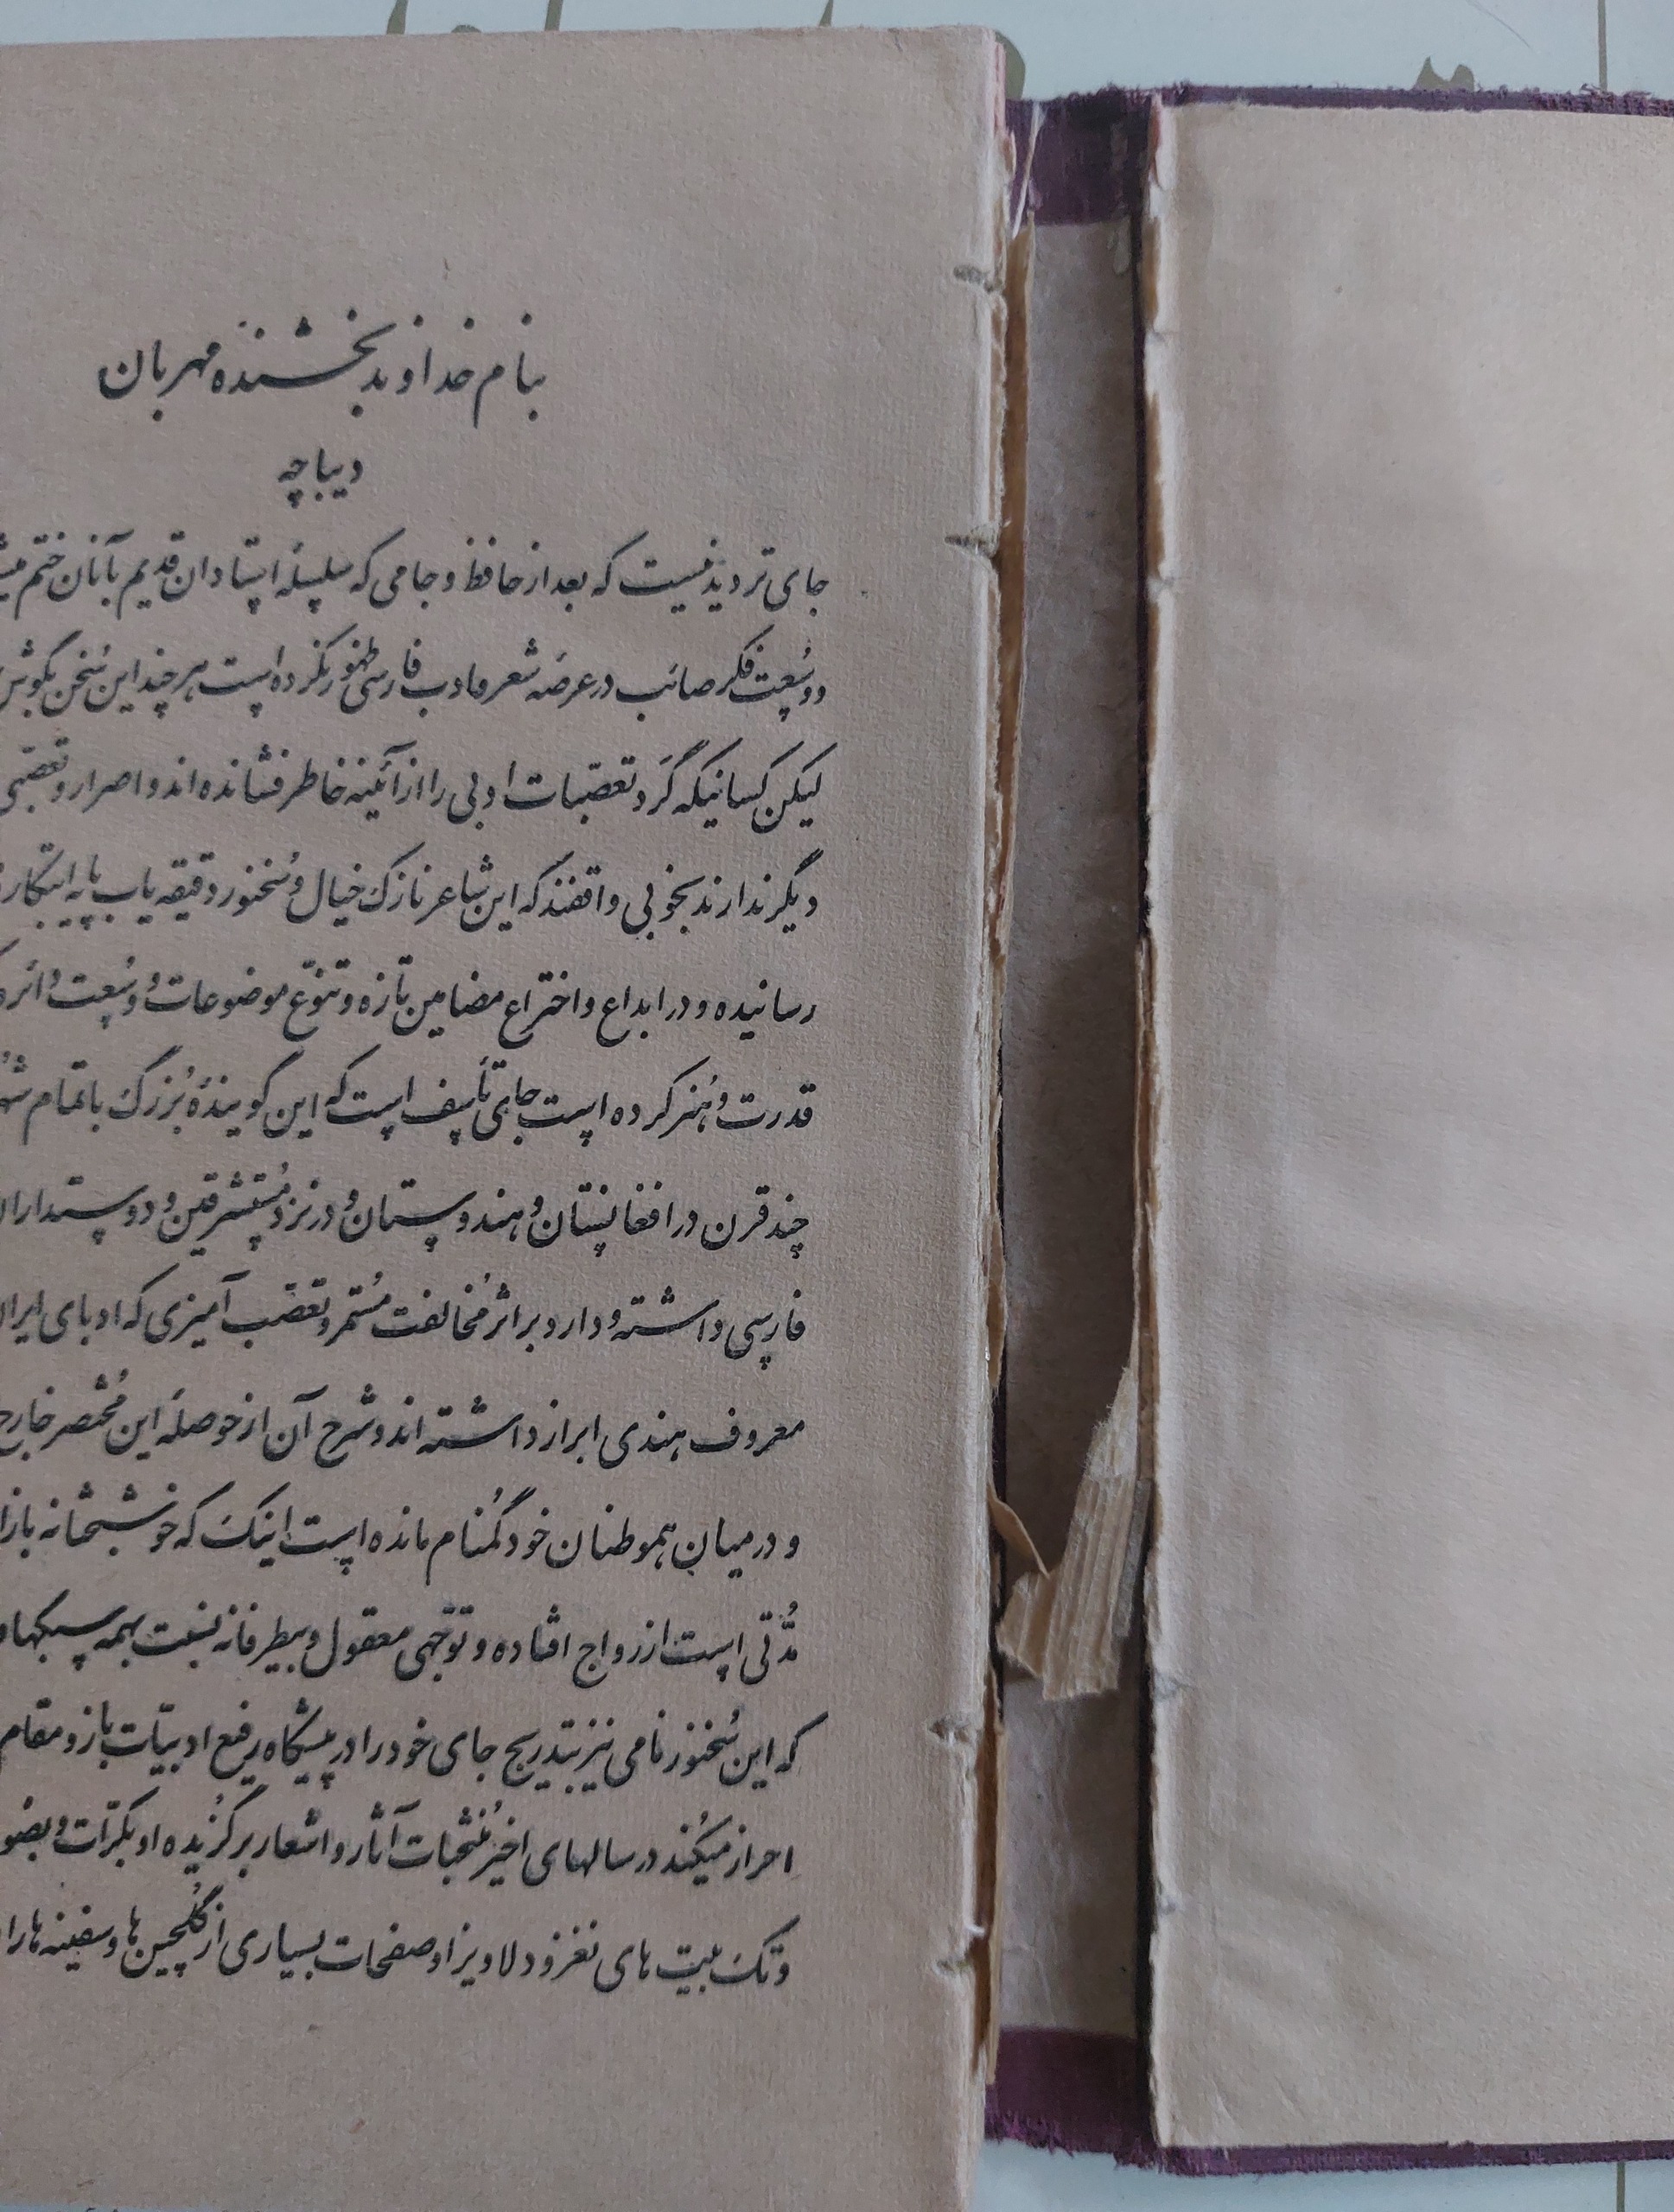 بنام خداوند بخشنده مهربان
دیباچه
جای تردید نیست که بعد از حافظ و جامی که سلسلهٔ استادان قدیم بآنان ختم
و وسعت فکر صائب در عرصه شعر و ادب فارسی ظهور نکرده است هر چند این سخن بگوش
لیکن کسانیکه گرد تعصبات ادبی را از آئینه خاطر فشانده اند و اصرار و تعصبی
دیگر ندارند بخوبی واقفند که این شاعر نازک خیال و سُخنور دقیقه یاب پایه ابتکار
رسانیده و در ابداع و اختراع مضامین تازه و تنوّع موضوعات و وُسعت
قدرت و هُنر کرده است جای تأسف است که این گویندهٔ بُزرگ با تمام
چند قرن در افغانستان و هندوستان و در نزد مُستشرقین و دوستداران
فارسی داشته و دارد بر اثر مُخالفت مُستمر و تعصّب آمیزی که ادبای ایران
معروف هندی ابراز داشته اند و شرح آن از حوصلهٔ این مُختصر خارج
و در میان هموطنان خود گُمنام مانده است اینک که خوشبختانه بازار
مُدّتی است از رواج افتاده و توجّهی معقول و بیطرفانه نسبت بهمه سبکها
که این سُخنور نامی نیز بتدریج جای خود را در پیشگاه رفیع ادبیّات باز و مقام
احراز میکُند در سالهای اخیر مُنتخبات آثار و اشعار برگُزیده او بکرّات و
و تک بیت های نغز و دلاویز او صفحات بسیاری از گُلچین ها و سفینه ها را